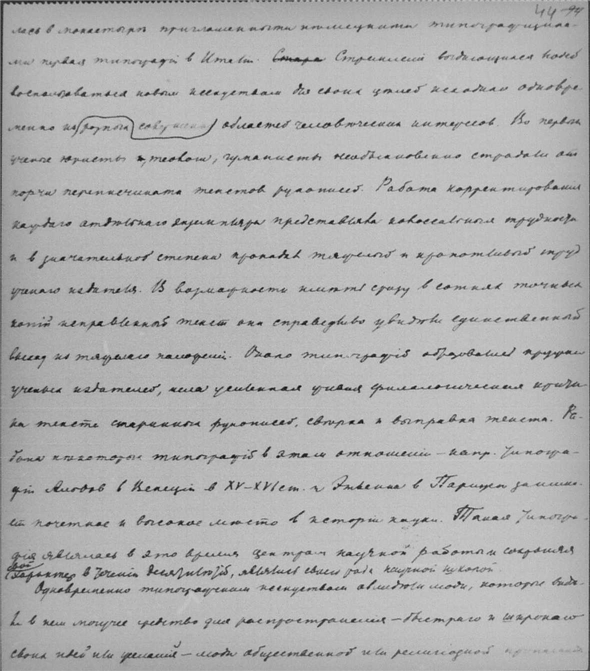 44
лась в монастыре приглашенными немецкими типографщика-
ми первая типография в Италии. Стремление выдающихся людей
воспользоваться новым искусством для своих целей исходило одновре-
менно из разных областей человеческих интересов. Во первых
ученые юристы, теологи, гуманисты необыкновенно страдали от
порчи переписчиками текстов рукописей. Работа корректирования
каждаго отдельнаго экземпляра представляла колоссальныя трудности
и в значительной степени пропадал тяжелый и кропотливый труд
ученаго издателя. В возможности иметь сразу в сотнях точных
копий исправленный текст они справедливо увидели единственный
выход из тяжелаго положения. Около типографий образовались кружки
ученых издателей, шла усиленная филологическая критика
текста старинных рукописей, сверка и выправка текста. Ра-
бота некоторых типографий в этом отношении – напр. типогра-
фий Альдов в Венеции в XV–XVI ст. и Этьенов в Париже занима-
ет почетное и высокое место в истории науки. Такая типогра-
фия являлась в это время центром научной работы и сохраняя
характер в течении десятилетий, являлась своего рода научной школой.
Одновременно типографским искусством овладели люди, которые виде-
ли в нем могучее средство для распространения – быстраго и широкаго
своих идей или желаний – люди общественной или религиозной